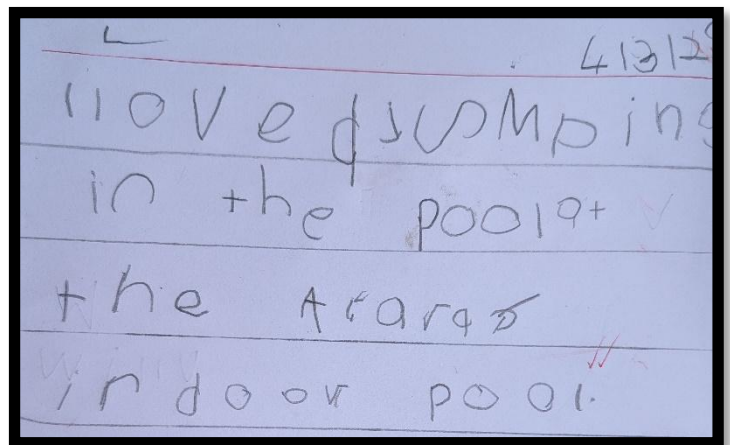 41312
I loved jumping
in the pool at
the Ararat
indoor pool.